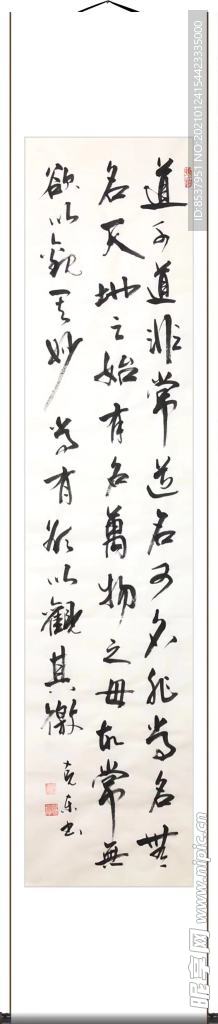 道可道非常道名可名非常名無
名天地之始有名萬物之母故常無
欲以觀其妙常有欲以觀其徼
克东书
ID:8537951 NO:20210124154423335000
昵享网 www.nipic.cn